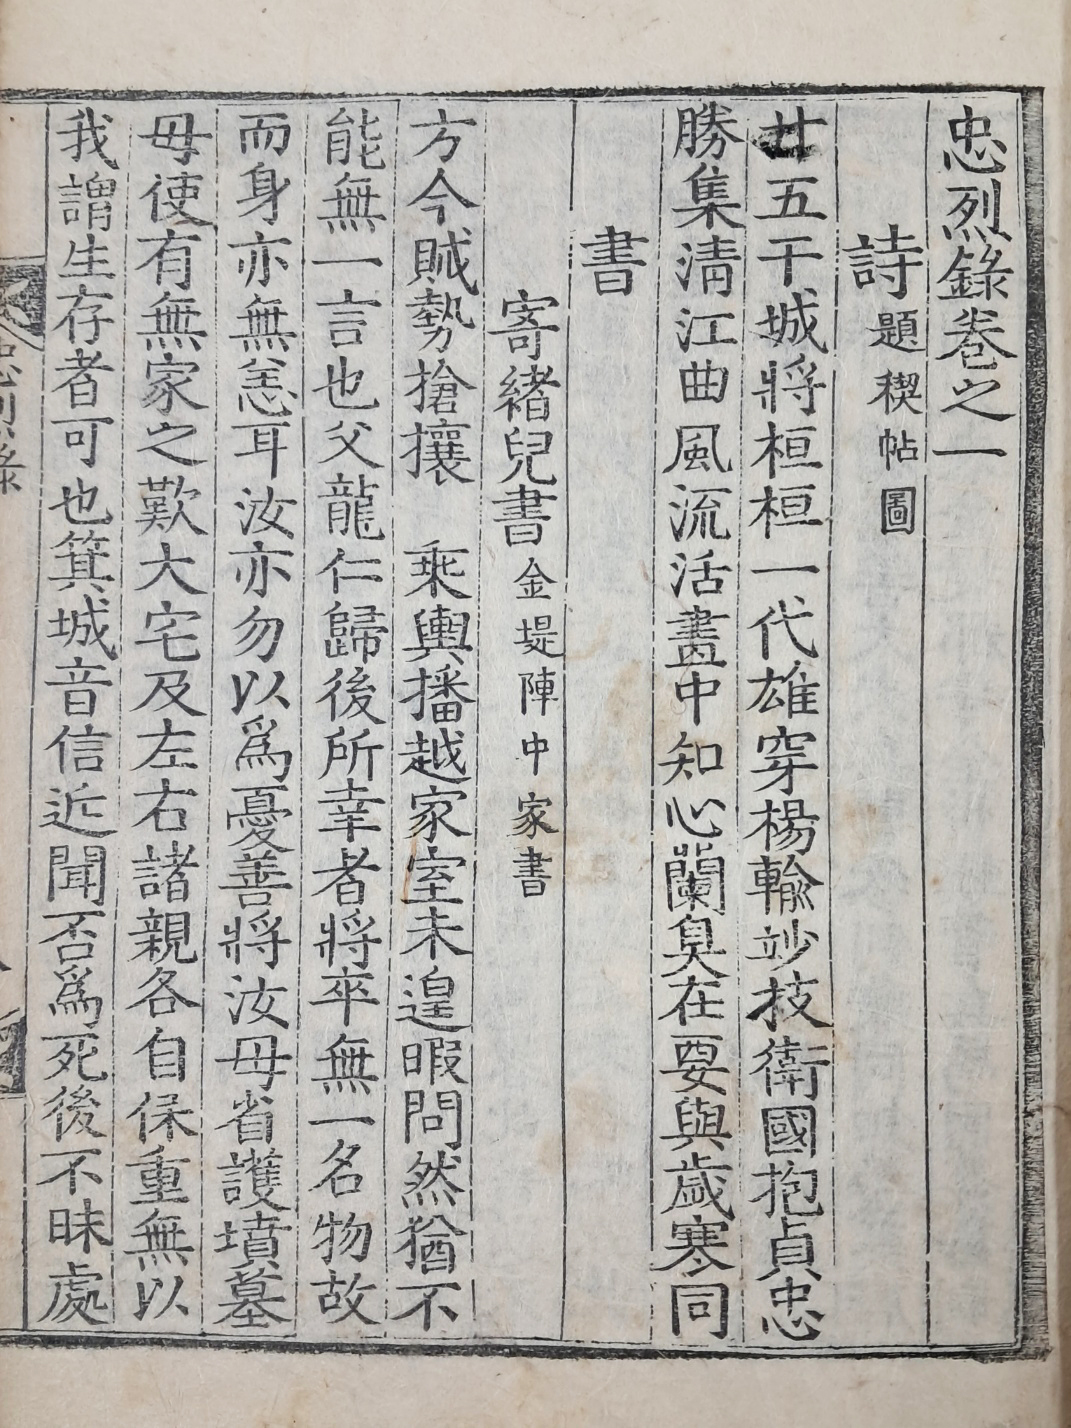 忠烈錄卷之一
詩題稧帖圖
廿五干城將桓桓一代雄穿楊輸妙技衛國抱貞忠
勝集淸江曲風流活畫中知心蘭臭在要與歲寒同
書
寄緖兒書金堤陣中家書
方今賊勢搶攘 乘輿播越家室未遑暇問然猶不
能無一言也父龍仁歸後所幸者將卒無一名物故
而身亦無恙耳汝亦勿以爲憂善將汝母省護墳墓
母使有無家之歎大宅及左右諸親各自保重無以
我謂生存者可也箕城音信近聞否爲死後不昧處